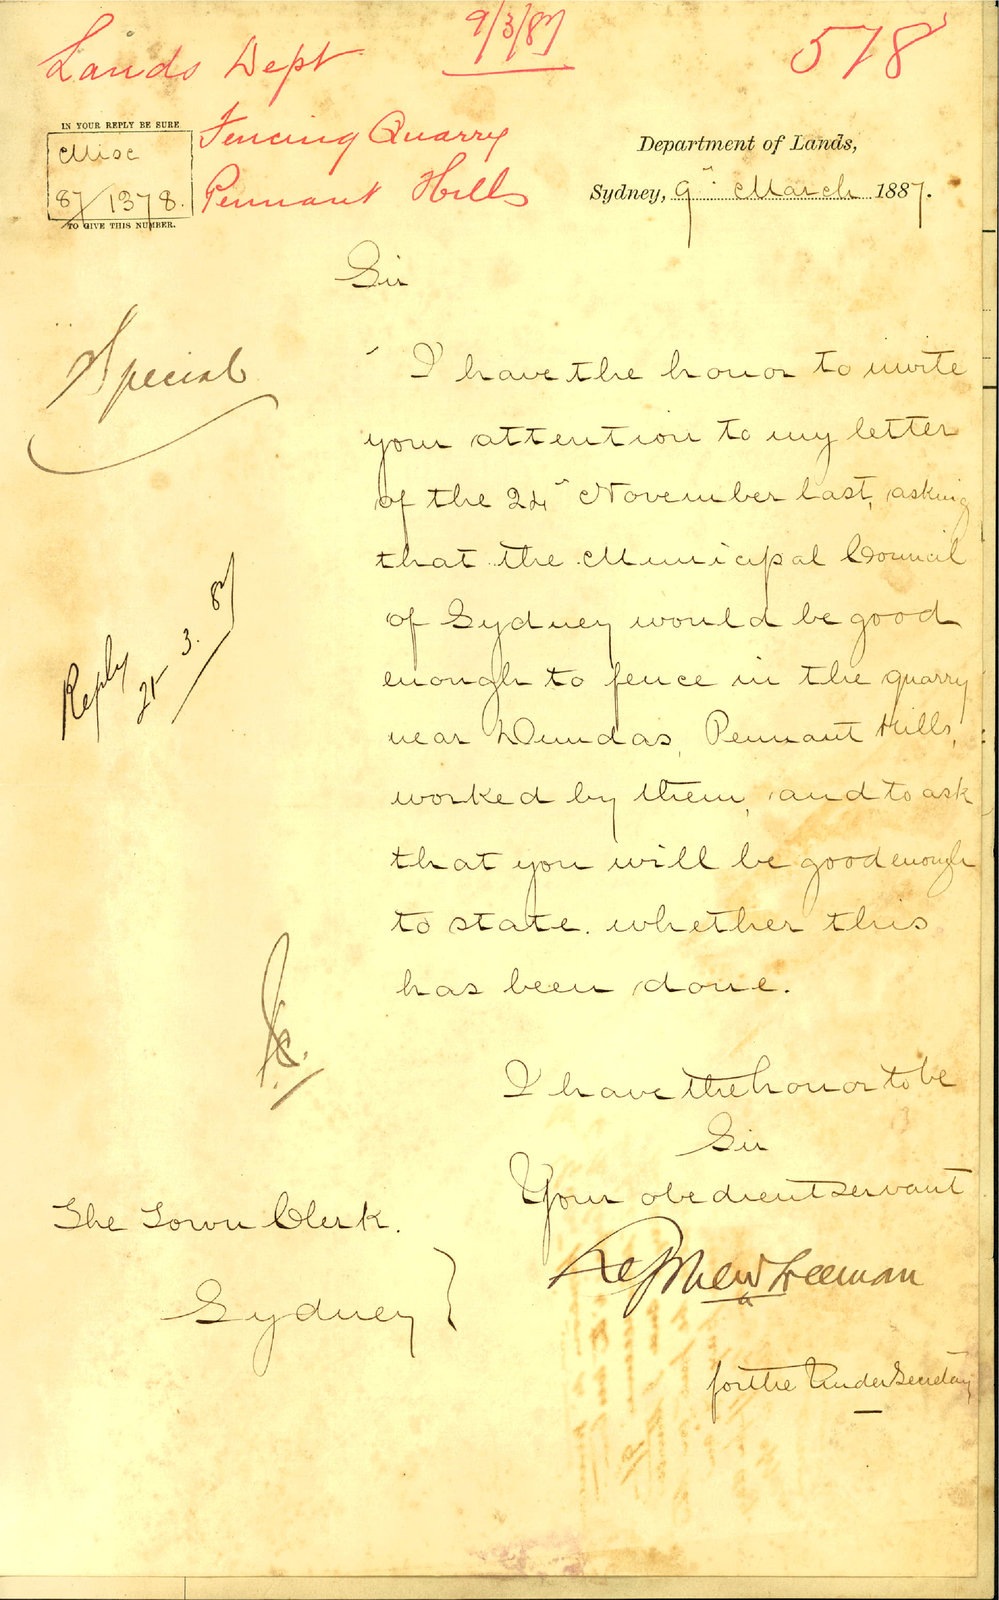 9/3/87
578
Lands Dept
Fencing Quarry
Pennant Hills
IN YOUR REPLY BE SURE
Misc
87/1378.
TO GIVE THIS NUMBER.
Department of Lands,
Sydney, 9" March 1887.
Sir
Special
I have the honor to invite
your attention to my letter
of the 24" November last, asking
that the Municipal Council
of Sydney would be good
enough to fence in the quarry
near Dundas, Pennant Hills,
worked by them, and to ask
that you will be good enough
to state whether this
has been done.
Reply
21-3.87
I have the honor to be
Sir
Your obedient servant
Freeman
for the Under Secretary
The Town Clerk.
Sydney